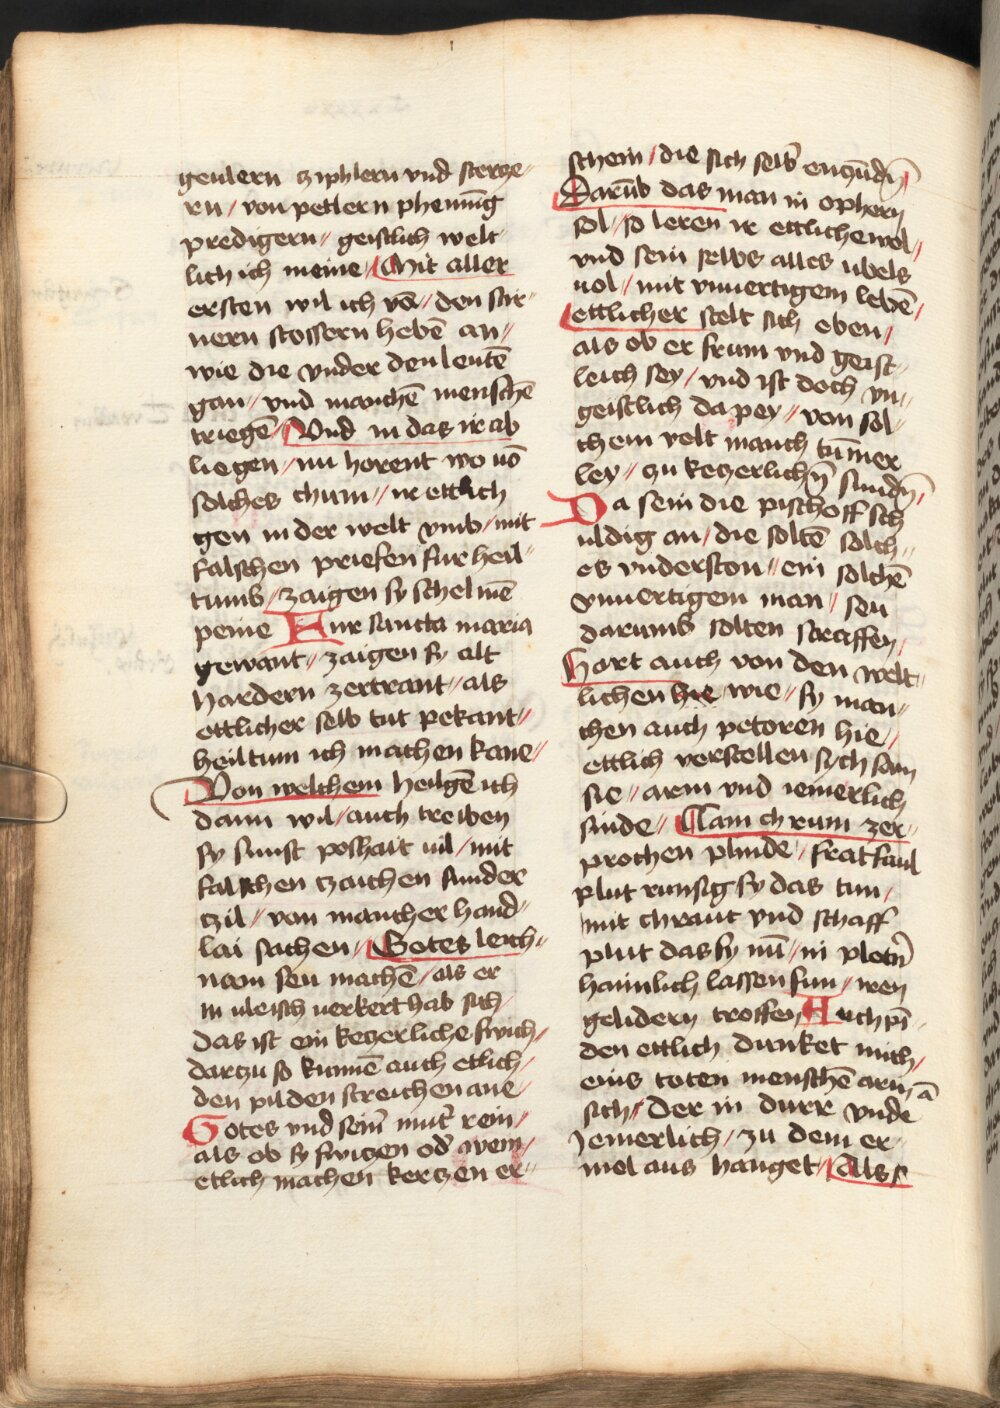 geulern ziphlern vnd stercze⸗
rn / von petlern phenning
predigern // geistlich welt⸗
lich ich meine / Mit aller
ersten wil ich võ // den stir⸗
nern stossern hebẽ an //
wie die vnder den leutẽ
gan // vnd manchẽ menschẽ
triegẽ / Vnd in das ir ab
liegen / nu horent wo uõ
solches chum // ir ettlich
gen in der welt vmb / mit
falschen priefen fur heil⸗
tumb / zaigen sy schelmẽ
peine Fur sancta maria
gewant // zaigen sy alt
hardern zertrant / als
ettlicher selb tut pekant //
heiltum ich machen kane //
Von welchem heilgẽ ich
dann wil / auch treiben
sy sunst poshait uil / mit
falschen tzaichen sunder
tzil // von mancher hand⸗
lai sachen // Gotes leich⸗
nam sen machẽ / als er
in uleisch uerkert hab sich /
das ist ein keczerliche swich /
dartzu so kunnẽ auch etlich /
den pilden streichen ane /
Gotes vnd seiñ mut̃ rein /
als ob sy switzen od̃ wein /
etlich machen kerczen er⸗
schein / die sich selb enczũdñ
Darũb das man in ophern
sol / so leren ir ettliche wol /
vnd sein selbs alles ubels
uol / mit vnuertigem lebẽ /
ettlicher stelt sich eben /
als ob er frum vnd geist⸗
leich sey / vnd ist doch vn⸗
geistlich da pey // von sol⸗
chem velt manch tũmer
ley // zu keczerlichñ sundñ /
Da sein die pischoff sch
uldig an / die soltẽ solch⸗
es vnderston // ein solchẽ
vnuertigem man / sen
darumb solten straffen /
Hort auch von den welt⸗
lichen hie wie / sy man⸗
chen auch petoren hie /
ettlich verstellen sych sam
sie // arm vnd iemerlich
sinde // Lam chrum zer⸗
prochen plinde / frat faul
plut runsig sy das tun /
mit chraut vnd schaff
plut das sy nũ / in plotñ
haimlich lassen sun / iren
gelidern troffen Auch pĩ⸗
den ettlich dunket mich /
eins toten menschẽ arm ã
sich / der in durr vnde
Jemerlich / zu dem er⸗
mel aus hanget / Als